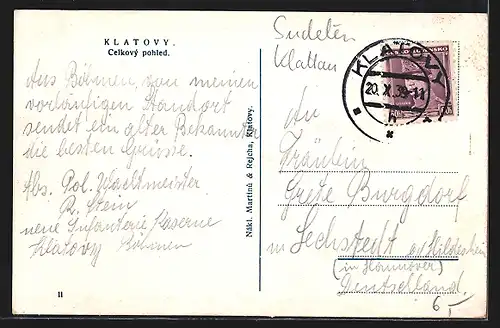 KLATOVY.
Celkový pohled.
Aus Böhmen, von meinen
vorläufigen Standort
sendet ein alter Bekannter
die besten Grüsse.
Abs. Pol. Wachtmeister
R. Stein
neue Infanterie Kaserne
Klatovy Böhmen
11
Nákl. Martinů & Rejcha, Klatovy.
Sudeten
Klattau
KLATOVY
20. X. 39 - 11
An
Fräulein
Grete Burgdorf
in Sechstedt a/Hildesheim
(in Hannover)
Deutschland.
6,-